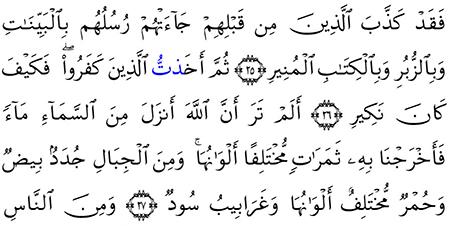 فَقَدْ كَذَّبَ ٱلَّذِينَ مِن قَبْلِهِمْ جَآءَتْهُمْ رُسُلُهُم بِٱلْبَيِّنَـٰتِ
وَبِٱلزُّبُرِ وَبِٱلْكِتَـٰبِ ٱلْمُنِيرِ ﴿٢٥﴾ ثُمَّ أَخَذتُّ ٱلَّذِينَ كَفَرُوا۟ ۖ فَكَيْفَ
كَانَ نَكِيرِ ﴿٢٦﴾ أَلَمْ تَرَ أَنَّ ٱللَّهَ أَنزَلَ مِنَ ٱلسَّمَآءِ مَآءً
فَأَخْرَجْنَا بِهِۦ ثَمَرَٰتٍ مُّخْتَلِفًا أَلْوَٰنُهَا ۚ وَمِنَ ٱلْجِبَالِ جُدَدٌۢ بِيضٌ
وَحُمْرٌ مُّخْتَلِفٌ أَلْوَٰنُهَا وَغَرَابِيبُ سُودٌ ﴿٢٧﴾ وَمِنَ ٱلنَّاسِ